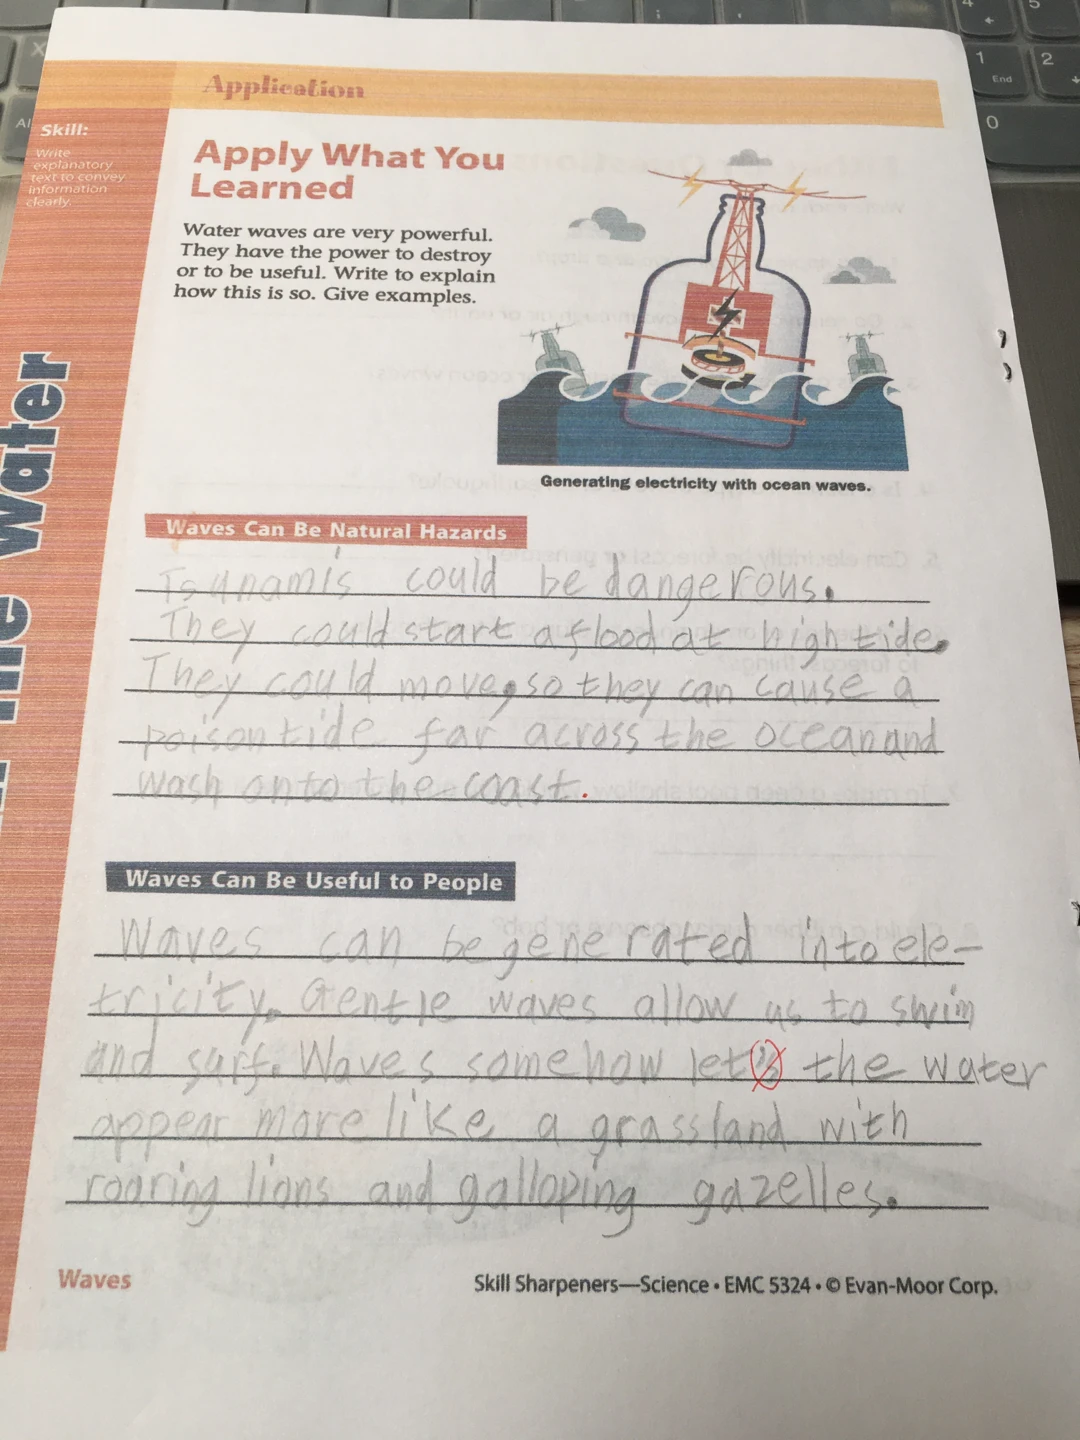 4
5
1
End
2
0
X
Application
Skill:
Write
explanatory
text to convey
information
clearly.
Apply What You
Learned
Water waves are very powerful.
They have the power to destroy
or to be useful. Write to explain
how this is so. Give examples.
Generating electricity with ocean waves.
Waves Can Be Natural Hazards
Tsunamis could be dangerous.
They could start a flood at high tide.
They could move, so they can cause a
poison tide far across the ocean and
wash onto the coast.
Waves Can Be Useful to People
Waves can be generated into ele-
tricity. Gentle waves allow us to swim
and surf. Waves somehow let's the water
appear more like a grassland with
roaring lions and galloping gazelles.
Water
Waves
Skill Sharpeners—Science • EMC 5324 • © Evan-Moor Corp.